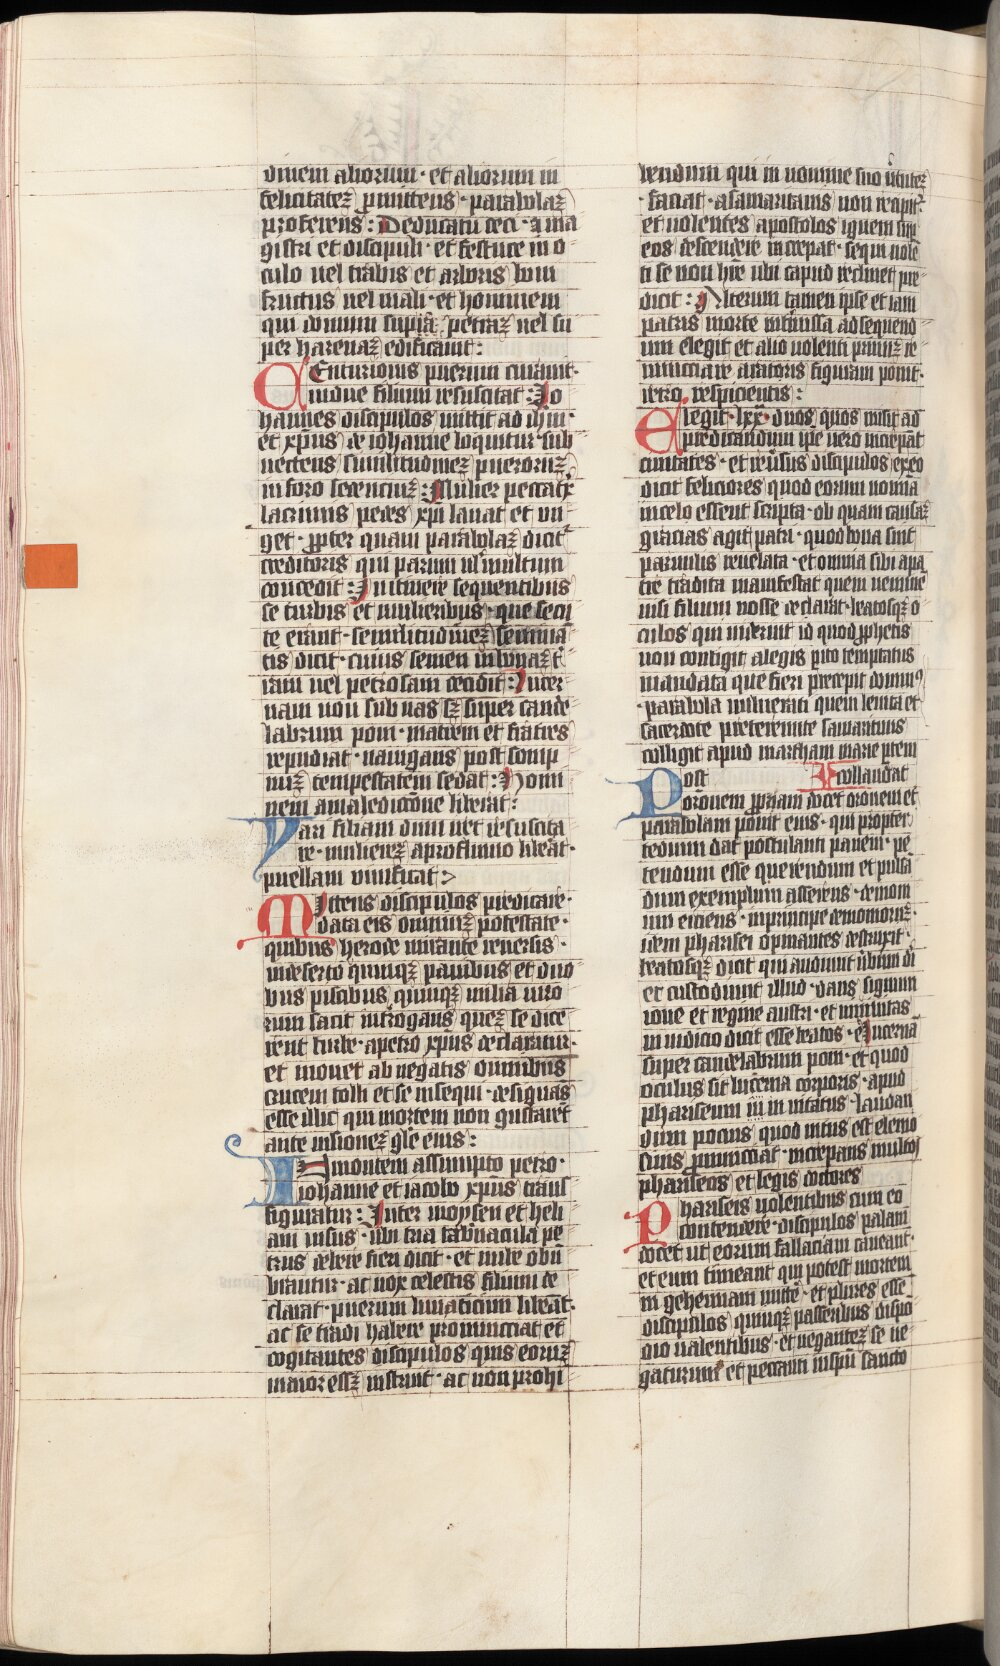 divem aliorum · et aliorum in
felicitateꝫ ꝓmittens · parabolaꝫ
proferens : De ducatu ceci · a ma
gistri et discipuli · et festuce in o
culo vel trabis et arboris boni
fructus vel mali · et hominem
qui domum supra petraꝫ vel su
per harenaꝫ edificavit :
Centurionis puerum curavit ·
vidue filium resuscitat : Jo
hannes discipulos mittit ad ihm ·
et xp̄us de iohanne loquitur sub
nectens similitudineꝫ pueroruꝫ
in foro sedenciuꝫ : Mulier peccatrix
lacrimis pedes xp̄i lavat et un
get · ꝓpter quam parabolaꝫ dicit
creditoris qui parum ul' multum
concedit : In itinere sequentibus
se turbis et mulieribus · que secu
te erant · similitudineꝫ semina
tis dicit · cuius semen in bonaꝫ t'
ram vel petrosam cecidit : Lucer
nam non sub vas sꝫ super cande
labrum poni · matrem et fratres
repudiat · navigans post somp
nuꝫ tempestatem sedat : Homi
nem a maledictōne liberat :
Yari filiam dum vet resuscita
re · muliereꝫ a profluvio lib'at ·
puellam vivificat
Mittens discipulos predicare ·
data eis omniuꝫ potestate ·
quibus herode mirante reversis ·
in deserto quinqꝫ panibus et duo
bus piscibus quinqꝫ milia viro
rum sacit int'rogans queꝫ se dice
rent turbe · a petro xp̄us declaratur ·
et monet ab negatis omnibus
crucem tolli et se insequi · designas
esse illic qui mortem non gustaret
ante visioneꝫ gl'e eius :
In montem assumpto petro ·
iohanne et iacobo xp̄us trans
figuratur : Inter moysen et heli
am visus · ubi tria tab'nacula pe
trus debere fieri dicit · et nube obū
brantur · ac vox celestis filium de
clarat · puerum lunaticum lib'at ·
ac se tradi habere pronunciat et
cogitantes discipulos quis eoruꝫ
maior esseꝫ instruit · ac non prohi
bendum qui in nomine suo utuntꝫ
· faciat · a samaritanis non recipit'
et volentes apostolos ignem sup
eos descendere increpat · sequi vole
ti se non h're ubi caput reclinet pre
dicit : Alterum tamen ipse et iam
patris morte intinissa ad sequend
um elegit et alio volenti primuꝫ re
nunciare aratoris figuram ponit ·
retro respicientis :
Elegit · lxx · duos quos misit ad
predicandum ip̄e vero increpat
civitates · et rev'sus discipulos exeo
dicit feliciores quod eorum nomina
in celo essent scripta · ob quam causaꝫ
gracias agit patri · quod bona sint
parvulis revelata · et omnia sibi a pa
tre tradita manifestat quem nemine
nisi filium nosse declarat · beatosqꝫ o
culos qui viderunt id quod ꝓphetis
non contigit a legis pito temptatus
mandata que fieri precepit dominus
· parabola vulnerati quem levita et
sacerdote pretereunte samaritanus
colligit apud martham marie ptem
Post collaudat
oronem ꝓpriam docet oronem et
parabolam ponit eius · qui propter
tedium dat postulanti panem · pe
tendum esse querendum et pulsa
dum exemplum asserens · demoni
um eiciens · in principe demonioruꝫ ·
idem pharisei opinantes destruxit ·
beatosqꝫ dicit qui audiunt verbum di
et custodiunt illud · dans signum
ione et regine austri · et ninivitas
in iudicio dicit esse beatos · et lucerna
super candelabrum poni · et quod
oculus sit lucerna corporis · apud
phariseum invitatus · laudan
dum pocius quod intus est elemo
sinis pronunciat · increpans multos
phariseos et legis doctores
Phariseis volentibus cum eo
contendere · discipulos palam
docet ut eorum fallaciam caveant ·
et eum timeant qui potest mortem
in gehennam mitte · et plures esse
discipulos quinqꝫ passeribus dispo
dio valentibus · et neganteꝫ se ne
gaturum et peccanti in spm sancto